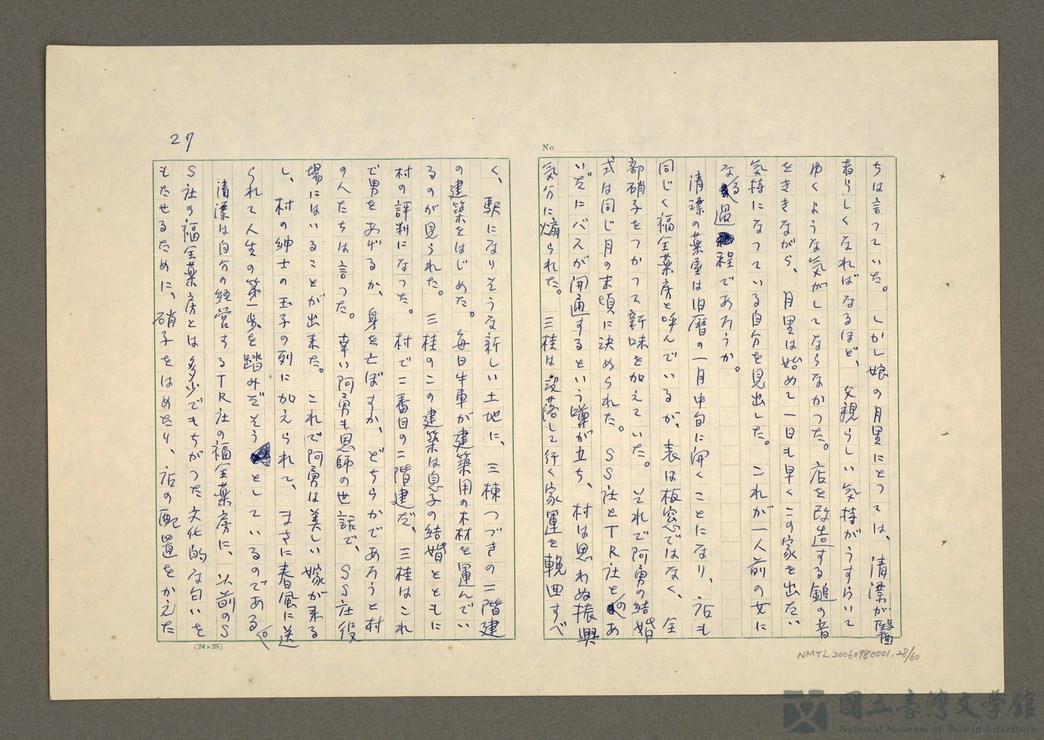 27
No.
ちは言つていた。しかし娘の月里にとつては、清漂が醫
者らしくなればなるほど、父親らしい気持がうすらいで
ゆくような気がしてならなかつた。店を改造する鎚の音
をききながら、月里は始めて一日も早くこの家を出たい
気持になつている自分を見出した。これが一人前の女に
なる過程であろうか。
清漂の薬屋は旧暦の一月中旬に開くことになり、店も
同じく福全薬房と呼んでいるが、表は板窓ではなく、全
部硝子をつかつて新味を加えていた。それで阿勇の結婚
式は同じ月の末頃に決められた。SS社とTR社とのあ
いだにバスが開通するという噂が立ち、村は思わぬ振興
気分に煽られた。三桂は没落して行く家運を輓回すべ
く、駅になりそうな新しい土地に、三棟つづきの二階建
の建築をはじめた。毎日牛車が建築用の木材を運んでい
るのが見られた。三桂のこの建築は息子の結婚とともに
村の評判になつた。村で二番目の二階建だ、三桂はこれ
で男をあげるか、身を亡ぼすか、どちらかであろうと村
の人たちは言つた。幸い阿勇も恩師の世話で、SS社役
場にはいることが出来た。これで阿勇は美しい嫁が来る
し、村の紳士の玉子の列に加えられて、まさに春風に送
られて人生の第一歩を踏みだそうとしているのである。
清漂は自分の経営するTR社の福全薬房に、以前のS
S社の福全薬房とは多少でもちがつた文化的な匂いを
もたせるために、硝子をはめたり、店の配置をかえた
(24×25)
NMTL20060980001.28/60
國立臺灣文學館
National Museum of Taiwan Literature